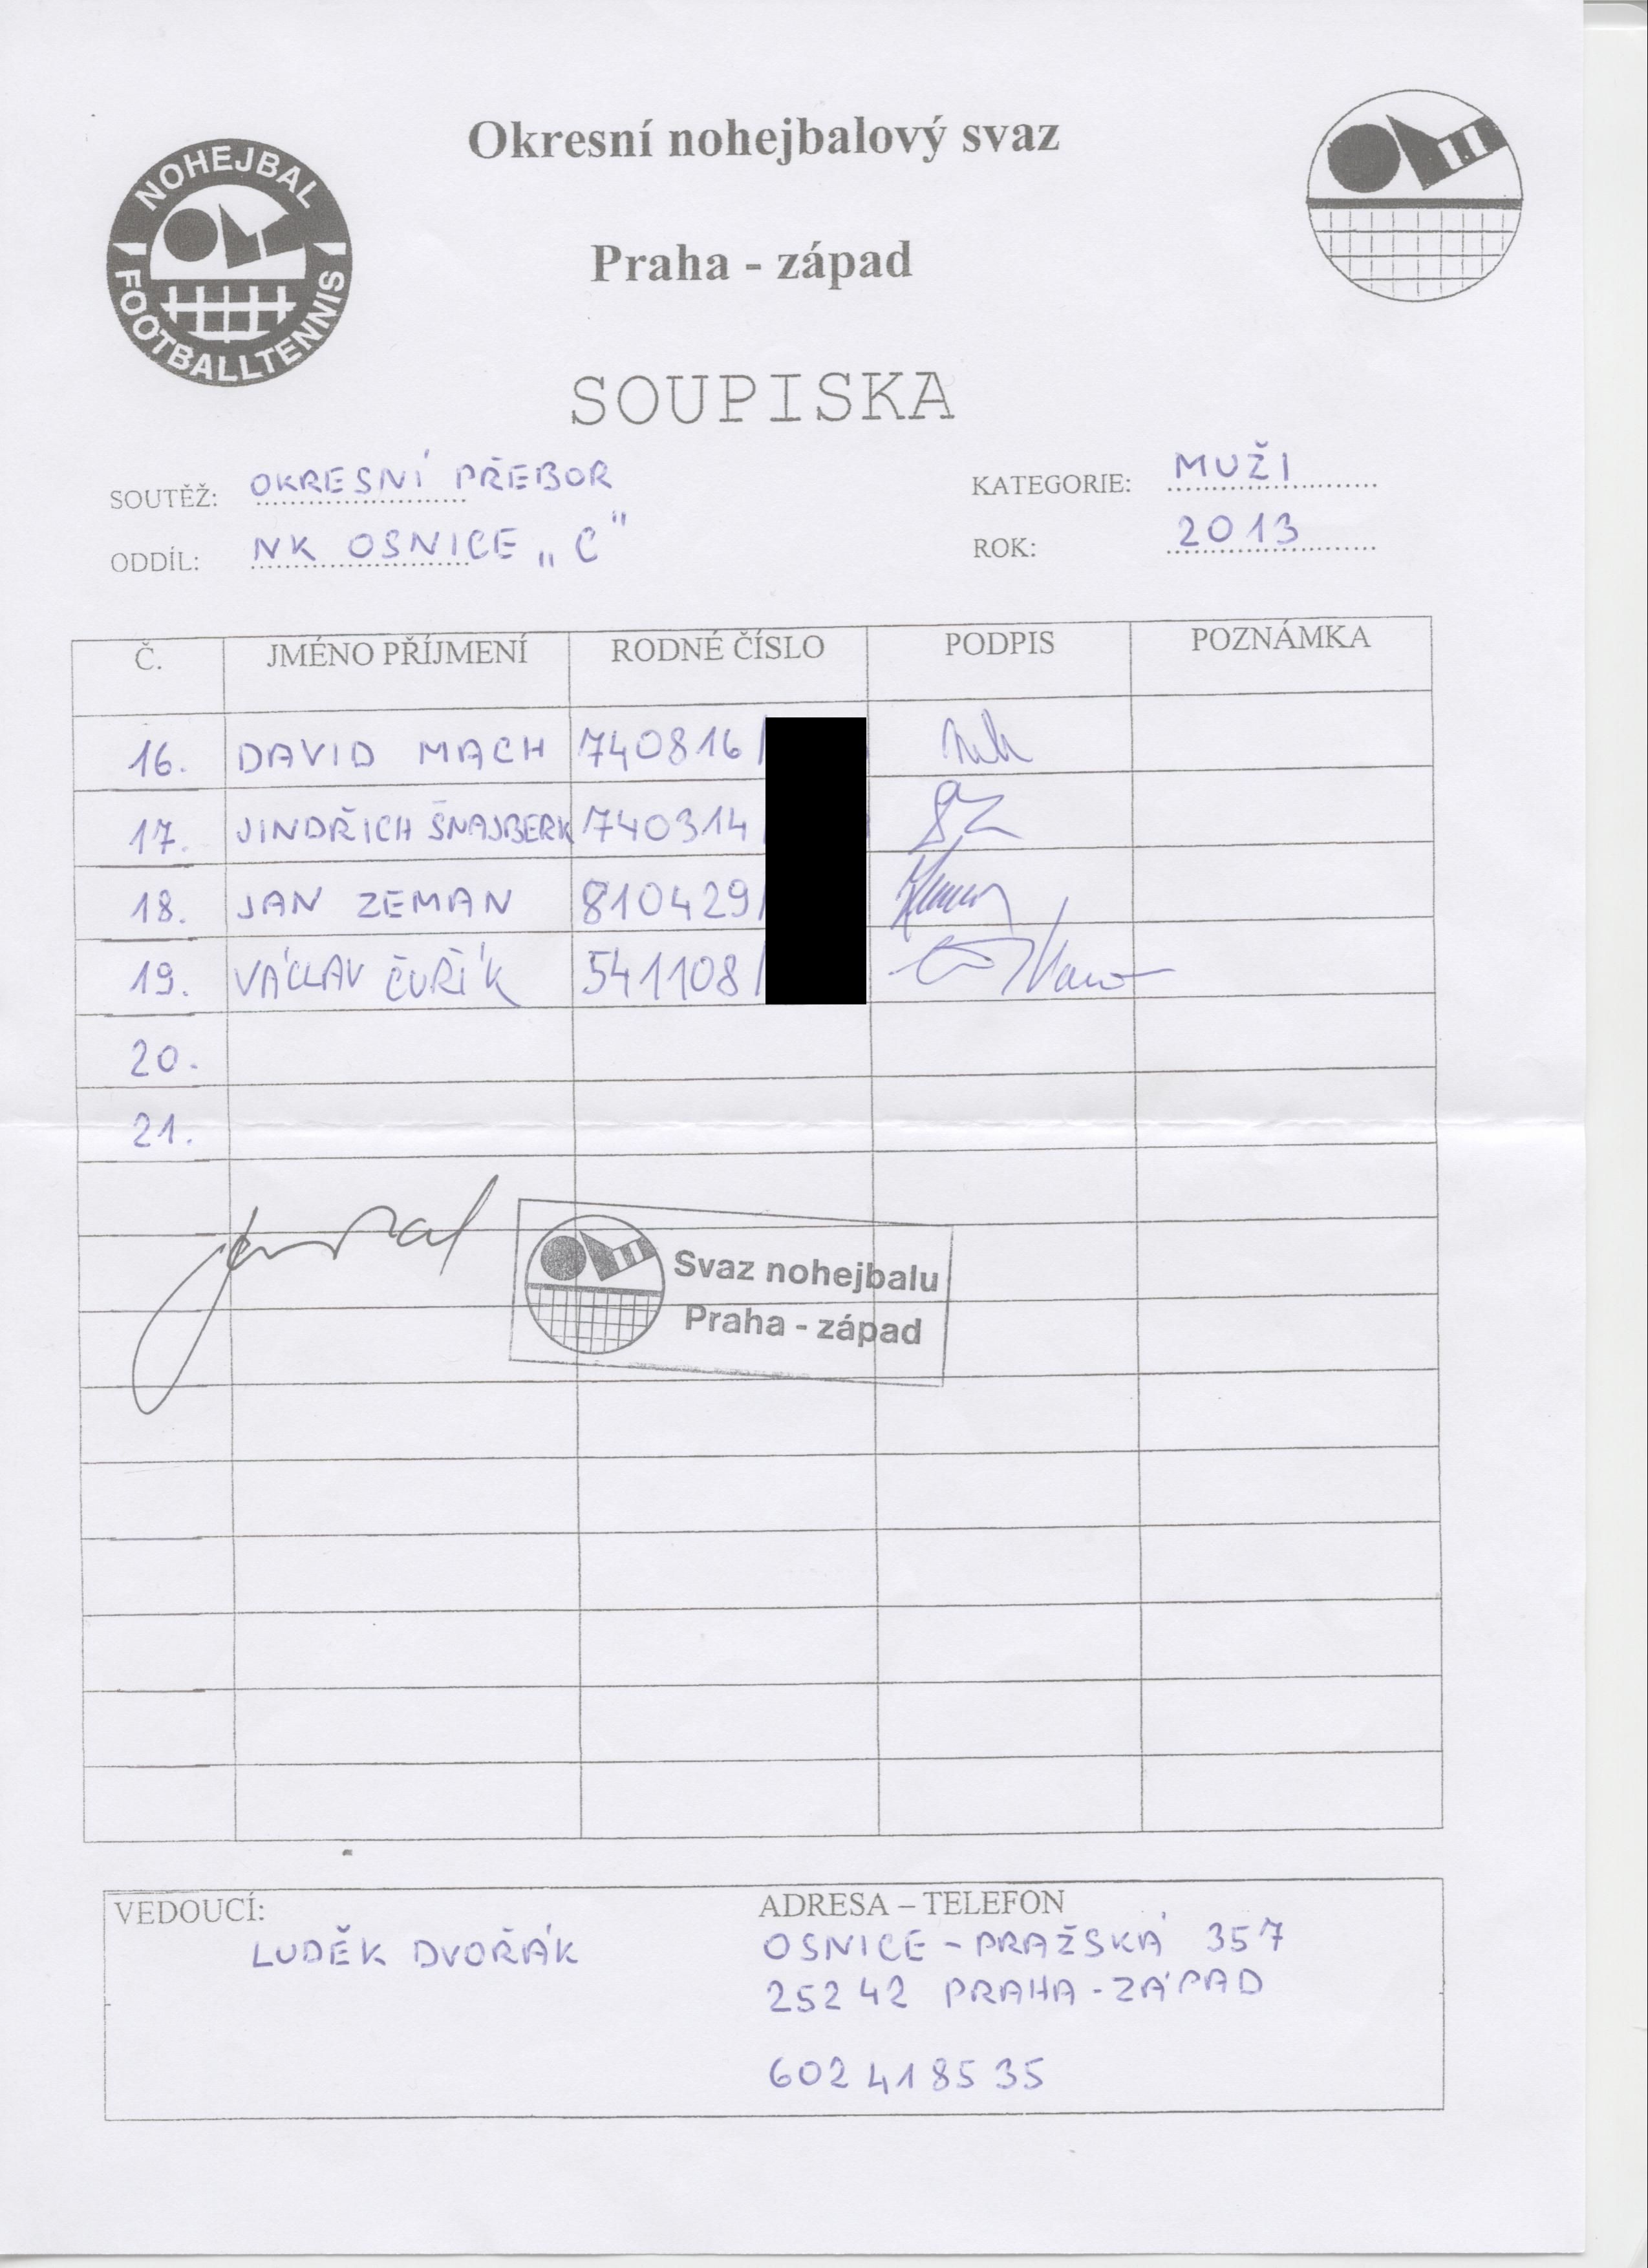 NOHEJBAL
FOOTBALLTENNIS
Okresní nohejbalový svaz
Praha - západ
SOUPISKA
SOUTĚŽ: OKRESNÍ PŘEBOR KATEGORIE: MUŽI
ODDÍL: NK OSNICE „C" ROK: 2013
Č. JMÉNO PŘÍJMENÍ RODNÉ ČÍSLO PODPIS POZNÁMKA
16. DAVID MACH 740816/
17. JINDŘICH ŠNAJBERK 740314
18. JAN ZEMAN 810429/
19. VÁCLAV ČUŘÍK 541108/
20.
21.
Svaz nohejbalu
Praha - západ
VEDOUCÍ: ADRESA – TELEFON
LUDĚK DVOŘÁK OSNICE - PRAŽSKÁ 357
25242 PRAHA - ZÁPAD
602 418535